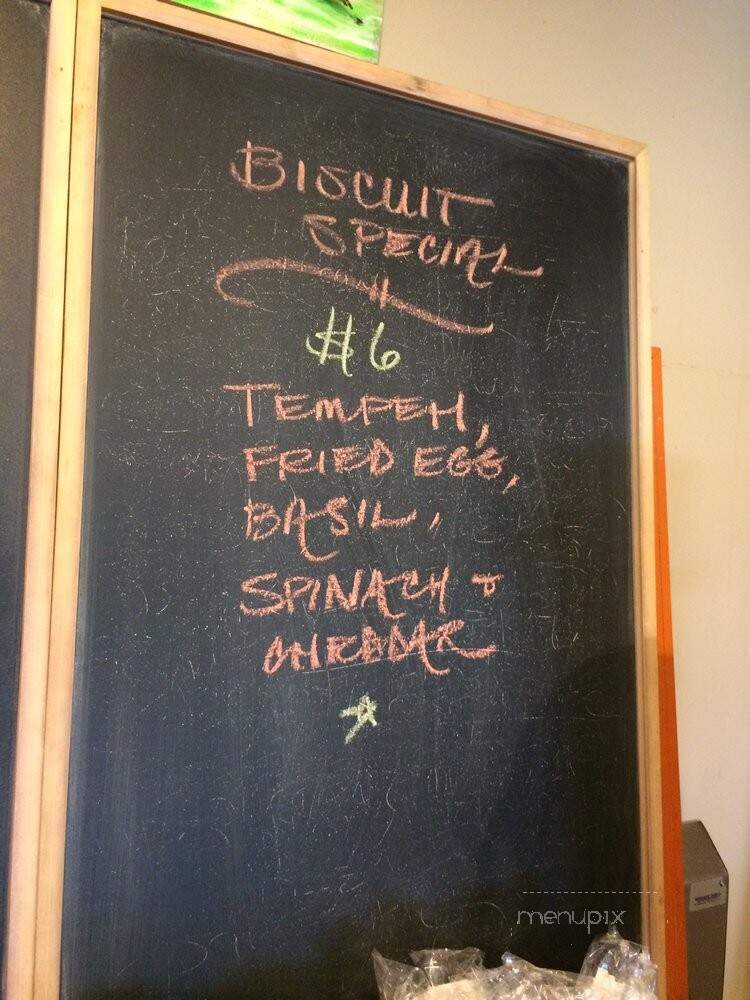 BISCUIT
SPECIAL
#6
TEMPEH,
FRIED EGG,
BASIL,
SPINACH &
CHEDDAR
menupix